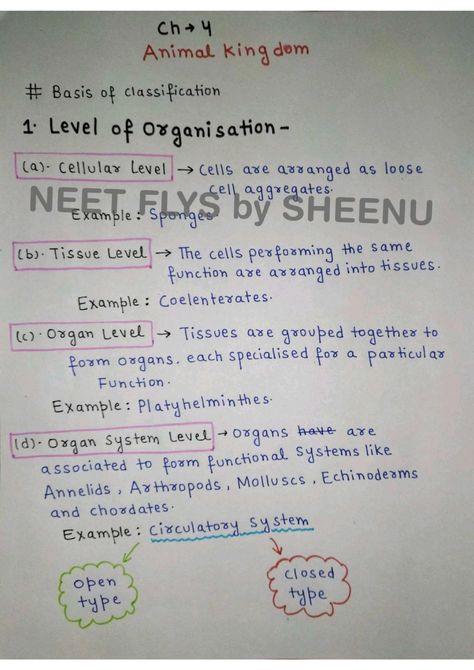 Ch → 4
Animal kingdom
# Basis of classification
1. Level of Organisation -
(a). Cellular Level → Cells are arranged as loose
cell aggregates.
NEET FLYS by SHEENU
Example : Sponges.
(b). Tissue Level → The cells performing the same
function are arranged into tissues.
Example : Coelenterates.
(c). Organ Level → Tissues are grouped together to
form organs, each specialised for a particular
Function.
Example : Platyhelminthes.
(d). Organ System Level → Organs have are
associated to form functional systems like
Annelids, Arthropods, Molluscs, Echinoderms
and chordates.
Example : Circulatory System
open closed
type type